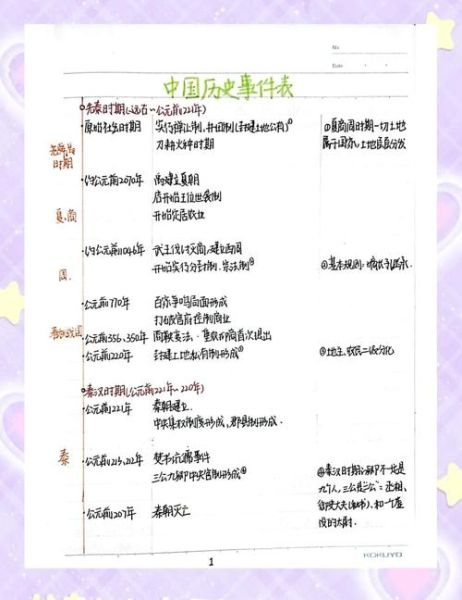 No.
Date
中国历史事件表
先秦时期(远古~公元前221年)
原始社会时期
实行禅让制、井田制(封建土地公有)①
刀耕火种时期
①夏商周时期一切土地
属于国家、土地层层分发
时期
约公元前2070年
禹建立夏朝
启开始王位世袭制
开始农居农业
夏、商
约公元前1046年
武王伐纣灭商,建立西周
开始实行分封制、宗法制②
周
②基本规则:嫡长子继承
公元前770年
百家争鸣局面形成
打破官府控制商业
春秋战国
公元前356、350年
商鞅变法、重农抑商首次提出
公元前220年
封建土地私有制形成③
③地主、农民二级分化
秦汉时期(公元前221年~220年)
公元前221年
秦朝建立
中央集权制度形成,郡县制形成
秦
公元前213、212年
焚书坑儒事件
三公九卿中央官制形成④
④秦汉时期公卿不一定是
九个人,三公是三公=丞相、
御史大夫
公元前207年
秦朝灭亡
KOKUYO
1